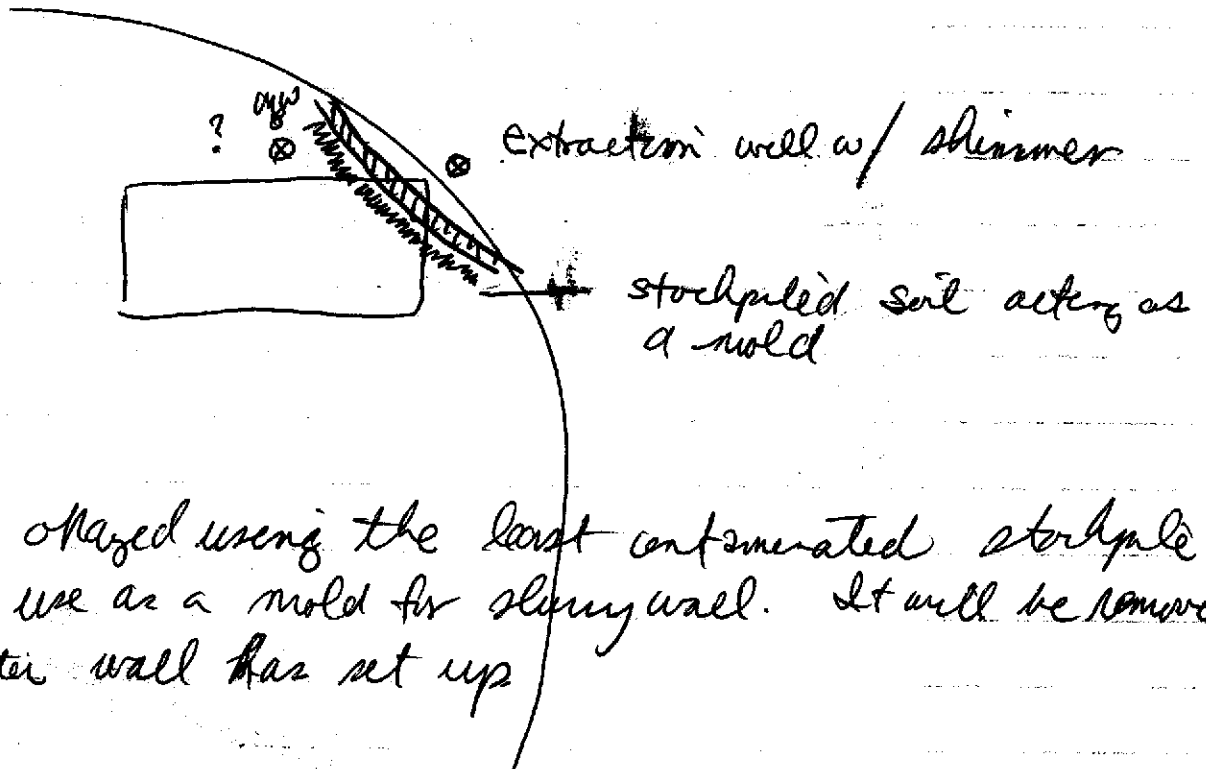 ?
extraction well w/ skimmer
stockpiled soil acting as
a mold
okayed using the least contaminated stockpile
use as a mold for slurry wall. It will be remove
ter wall has set up